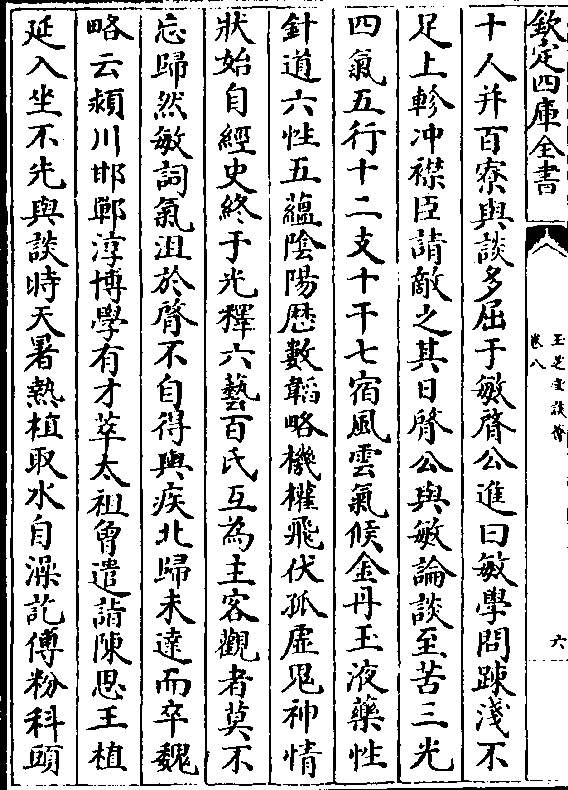 欽定四庫全書
十人并百寮與談多屈于敏𦙍公進曰敏學問踈淺不
足上軫冲襟臣請敵之其日𦙍公與敏論談至苦三光
四氣五行十二支十干七宿風雲氣候金丹玉液藥性
針道六性五蘊陰陽厯數韜略機權飛伏孤虛鬼神情
狀始自經史終于光釋六藝百氏互為主客觀者莫不
忘歸然敏詞氣沮於𦙍不自得輿疾北歸未達而卒魏
略云頴川邯鄲淳博學有才萃太祖曾遣詣陳思王植
延入坐不先與談時天暑熱植取水自澡訖傅粉科頭
玉芝堂談薈
卷八
六